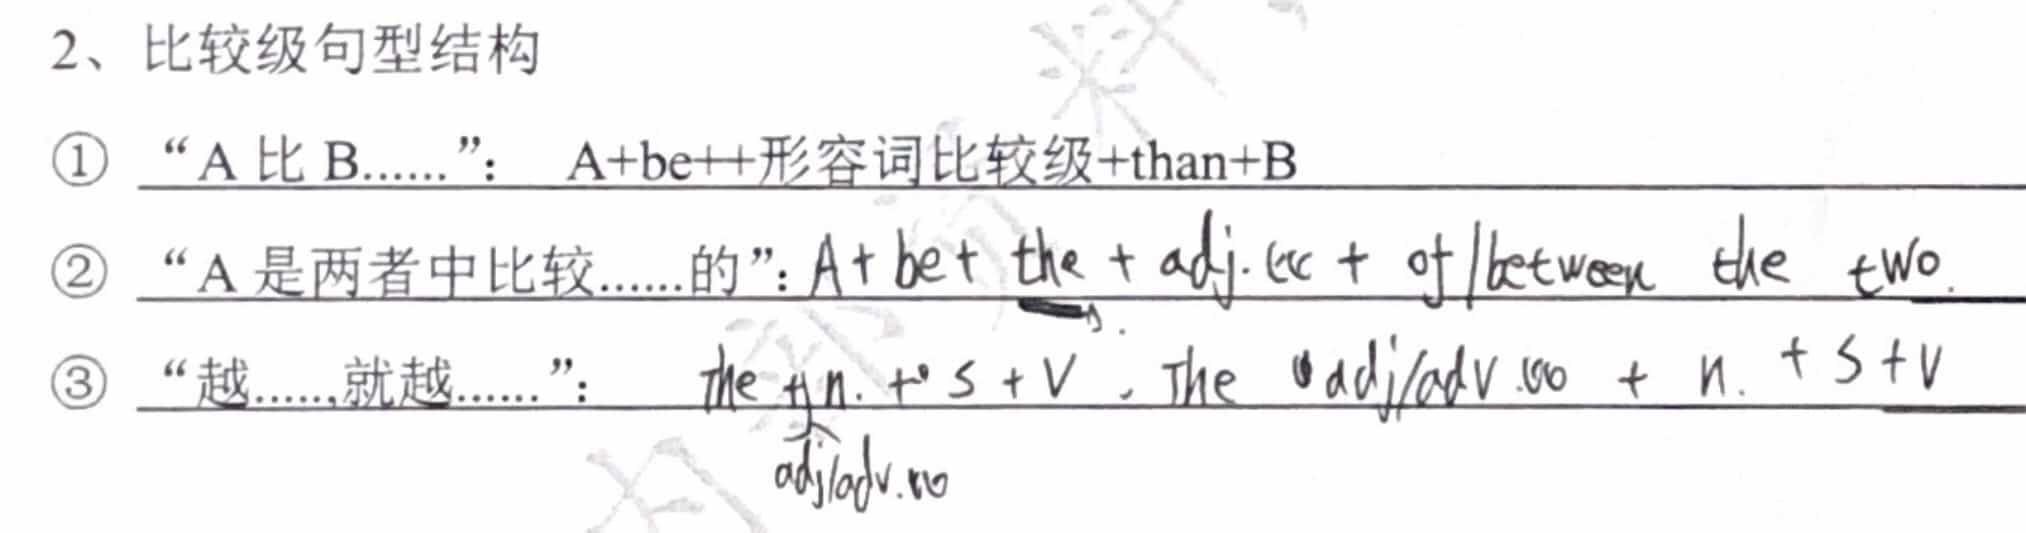 2、比较级句型结构
① “A 比 B......”： A+be++形容词比较级+than+B
② “A 是两者中比较......的”：A+ be+ the + adj. + of/between the two.
③ “越......,就越......”： The + n. + S + V , The adj/adv. + n. + S + V
adj/adv.